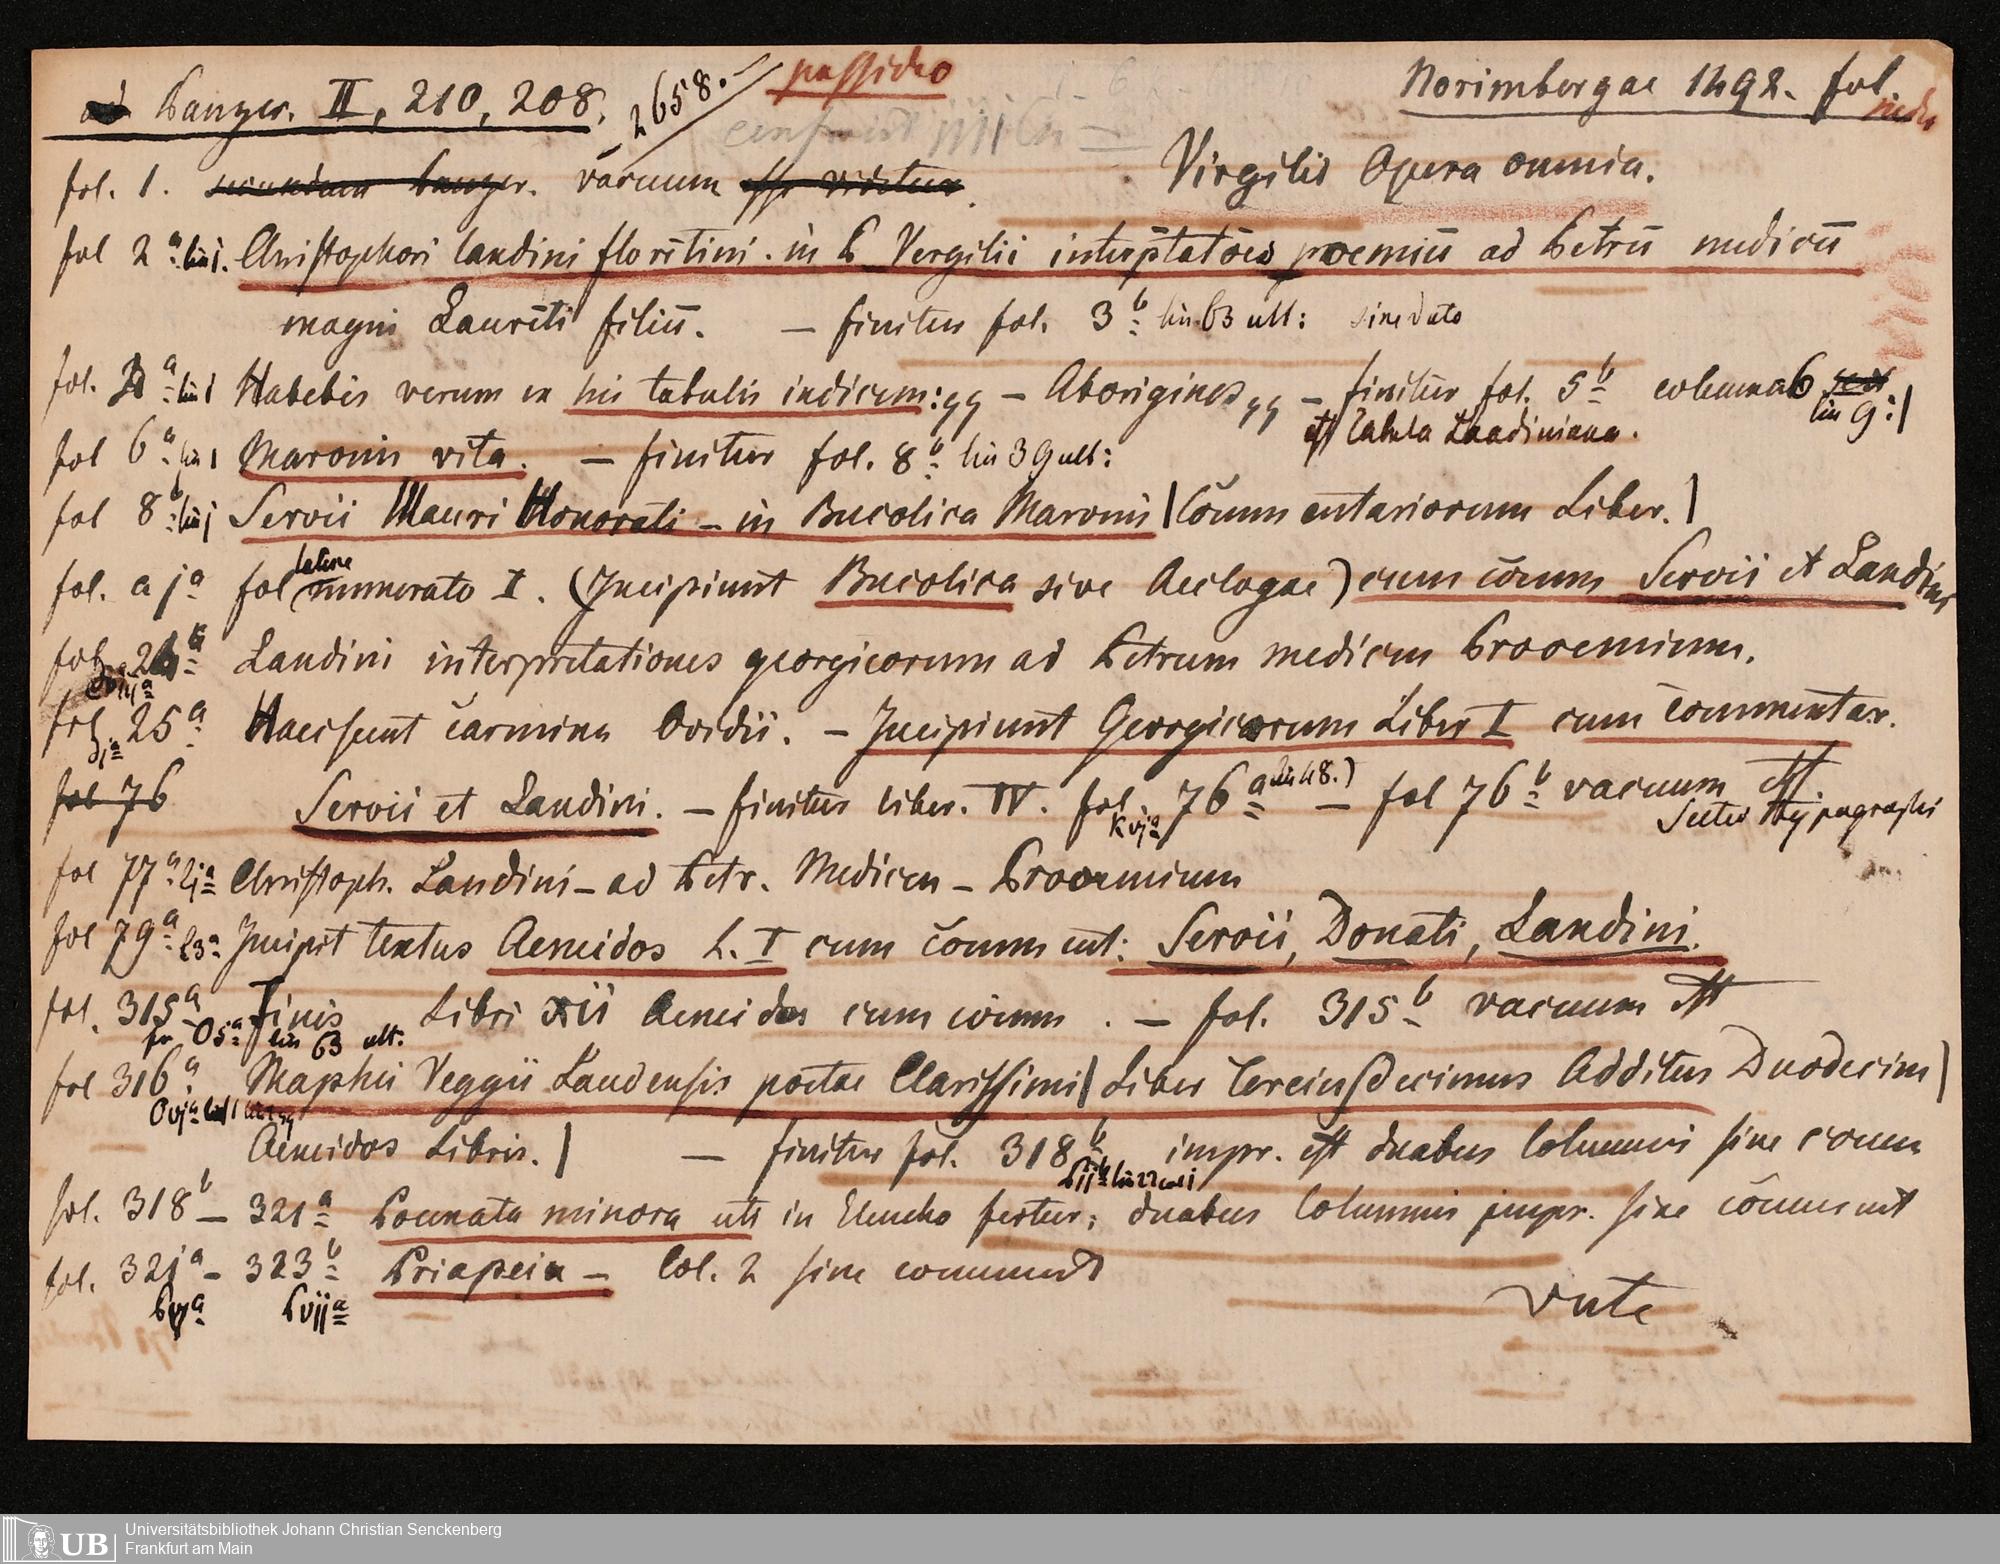 Panzer. II, 210, 208. 2658. possideo Norimbergae 1492. fol.
Virgilii Opera omnia.
fol. 1. secundum Panzer. vacuum esse videtur.
fol 2ª lin 1. Christophori landini florētini. in P. Vergilii interp̄tatōes proemiū ad Petrū medicū
magni Laurēti filiū. — finitur fol. 3ᵇ lin 63 ult: sine dato
fol. ª lin 1 Habebis verum in his tabulis indicem: qq — Aborigines qq — finitur fol. 5ᵇ columna 6 lin 9:|
est Tabula Landiniana.
fol 6ª lin 1 Maronis vita. — finitur fol. 8ᵇ lin 39 ult:
fol 8ᵇ lin Servii Mauri Honorati — in Bucolica Maronis | Cōmmentariorum Liber. |
fol. a jª fol numerato I. (Incipiunt Bucolica sive Aeclogae) cum cōmm Servii et Landini
fol. Landini interpretationes georgicorum ad Petrum medicem Prooemium.
fol 25ª Haec sunt Carmina Ovidii. — Incipiunt Georgicorum Liber I cum commentar.
fol 76 Servii et Landini. — finitur liber. IV. fol. 76ª lin 48.) — fol 76ᵇ vacuum est
K vjª typographi
fol 77ª Christoph. Landini — ad Petr. Medicem — Prooemium
fol 79ª L3ª Incipit textus Aeneidos L. I cum cōmment: Servii, Donati, Landini.
fol. 315ª Finis Libri xii Aeneidos cum cōmm. — fol. 315ᵇ vacuum est
O5ª lin 63 ult.
fol 316ª Maphei Veggii Laudensis poetae Clarissimi | Liber Terciusdecimus Additus Duodecim |
Ovjª
Aeneidos Libris. | — finitur fol. 318ᵇ impr. est duabus Columnis sine comm
fol. 318ᵇ — 321ª Poemata minora uti in Elencho fertur; duabus Columnis impr. sine cōmment
fol. 321ª — 323ᵇ Priapeia — Col. 2 sine comment
Pvjª Pvijª verte
UB Universitätsbibliothek Johann Christian Senckenberg
Frankfurt am Main